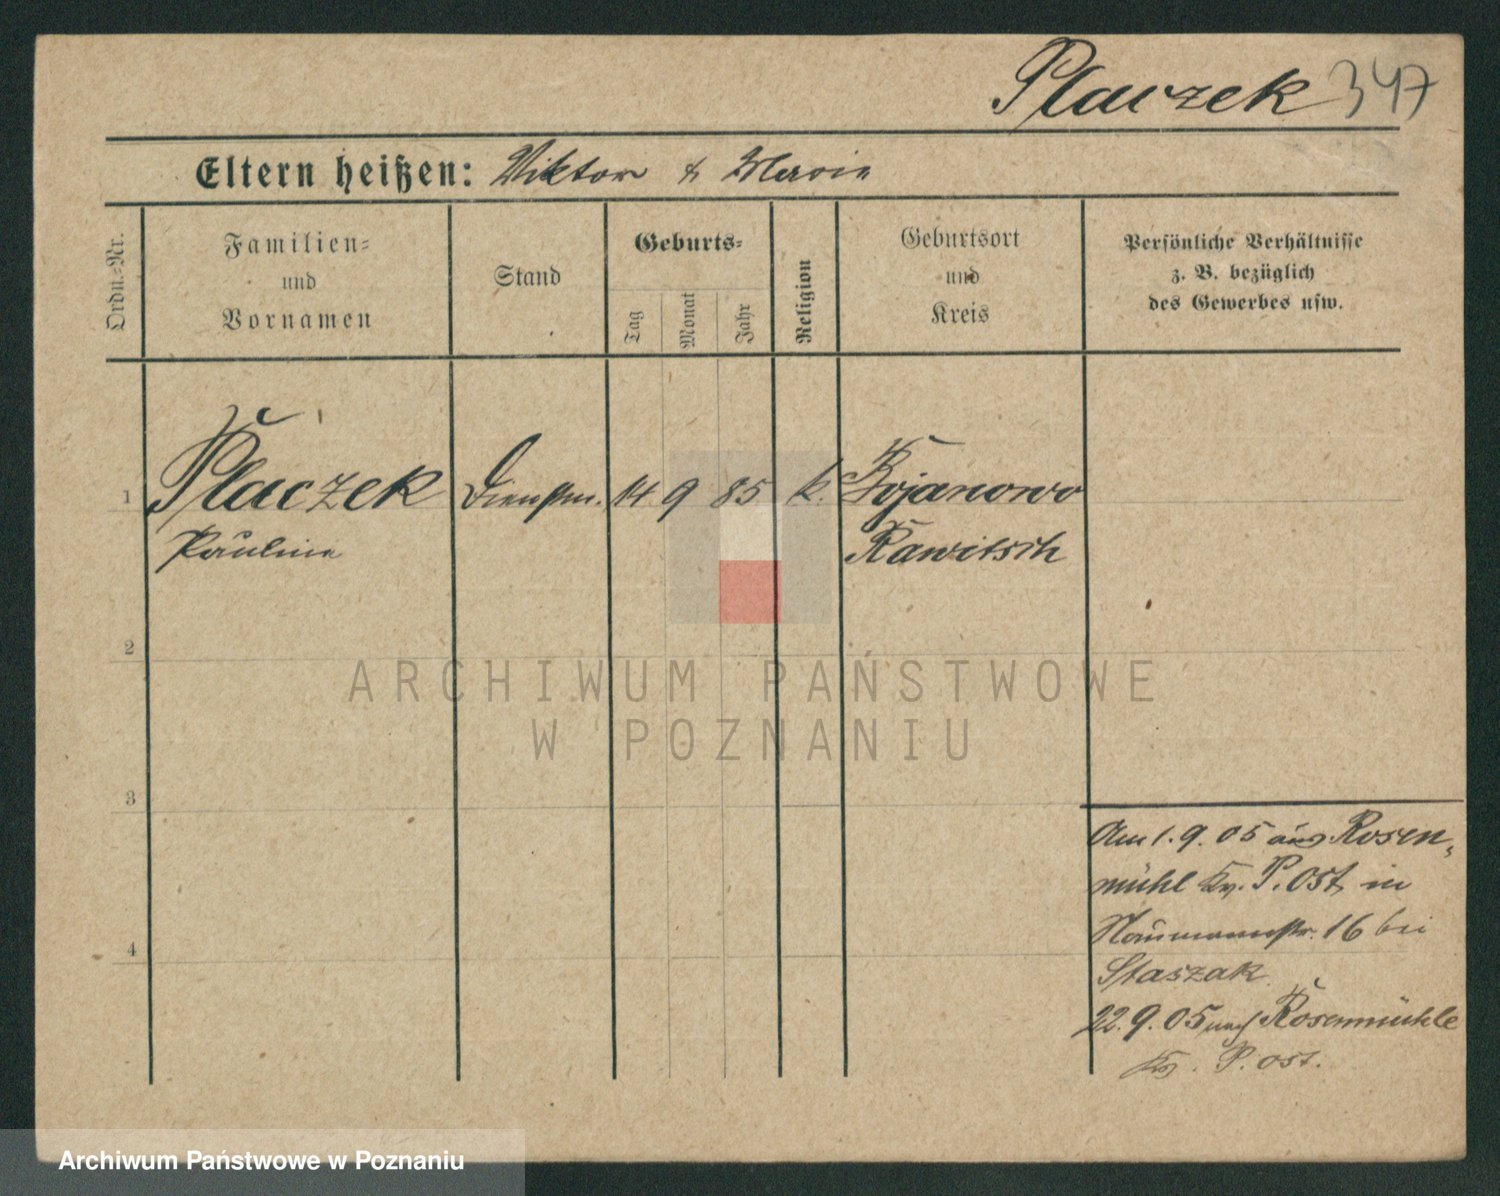 Placzek 347
Eltern heißen: Viktor & Marie
Ordn.=Nr.
Familien=
und
Vornamen
Stand
Geburts=
Tag
Monat
Jahr
Religion
Geburtsort
und
Kreis
Persönliche Verhältnisse
z. B. bezüglich
des Gewerbes usw.
1 Placzek Dienstm. 14 9 85 k. Bojanowo
Pauline Rawitsch
2
3
4
Am 1. 9. 05 aus Rosen-
mühl Kr. P. Ost, in
Naumannstr. 16 bei
Staszak.
22. 9. 05 nach Rosenmühle
Kr. P. Ost.
ARCHIWUM PAŃSTWOWE
W POZNANIU
Archiwum Państwowe w Poznaniu